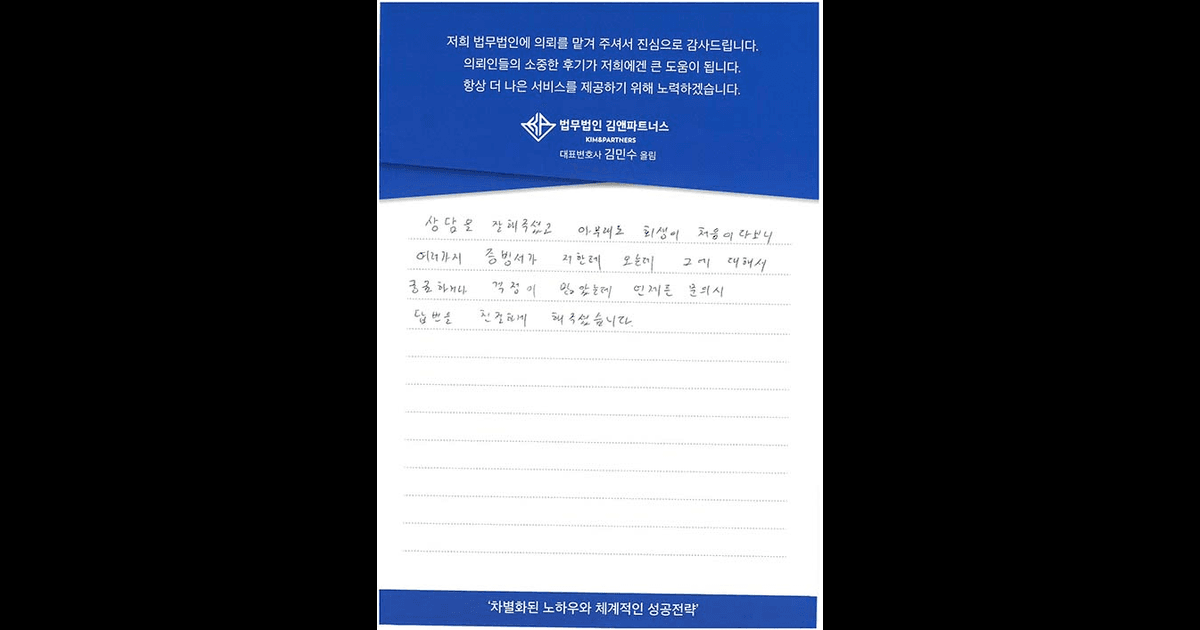 저희 법무법인에 의뢰를 맡겨 주셔서 진심으로 감사드립니다.
의뢰인들의 소중한 후기가 저희에겐 큰 도움이 됩니다.
항상 더 나은 서비스를 제공하기 위해 노력하겠습니다.
법무법인 김앤파트너스
KIM&PARTNERS
대표변호사 김민수 올림
상담을 잘해주셨고 아무래도 회생이 처음이다보니
여러가지 증빙서가 저한테 오는데 그에 대해서
궁금하거나 걱정이 많았는데 언제든 문의시
답변을 친절하게 해주셨습니다.
'차별화된 노하우와 체계적인 성공전략'